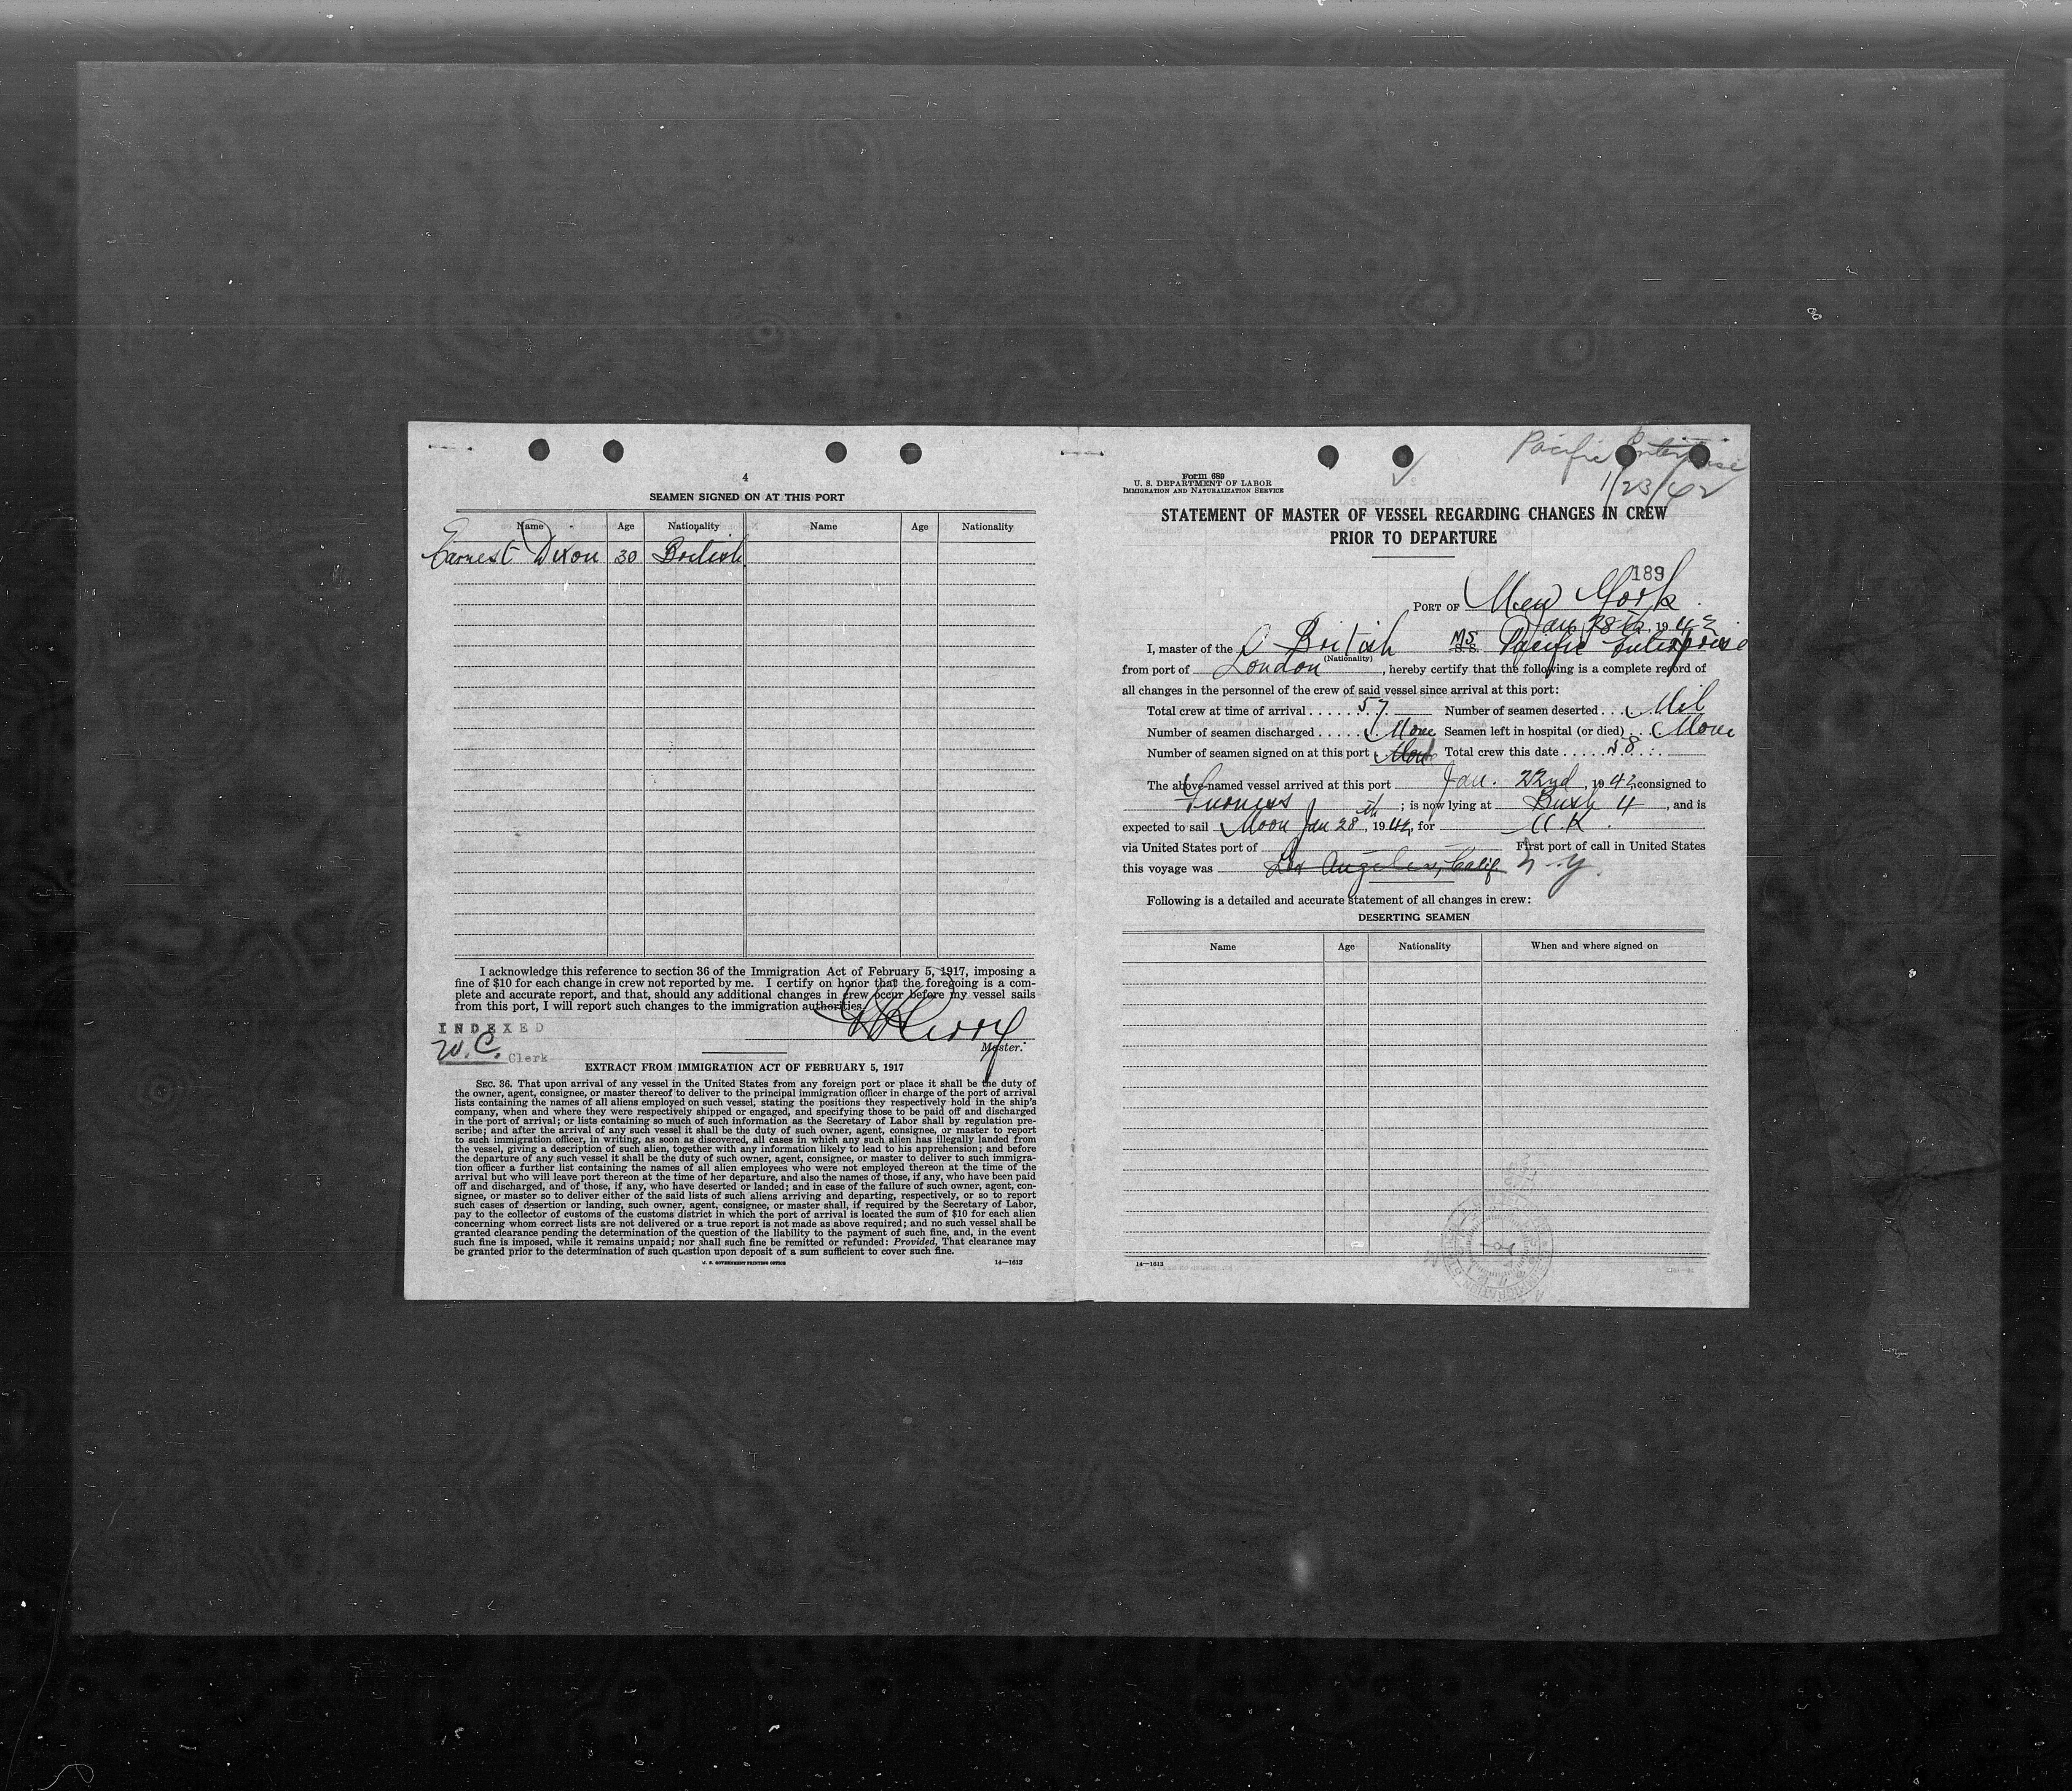 4
SEAMEN SIGNED ON AT THIS PORT
Name Age Nationality Name Age Nationality
Earnest Dixon 30 British
I acknowledge this reference to section 36 of the Immigration Act of February 5, 1917, imposing a
fine of $10 for each change in crew not reported by me. I certify on honor that the foregoing is a com-
plete and accurate report, and that, should any additional changes in crew occur before my vessel sails
from this port, I will report such changes to the immigration authorities.
INDEXED
W.C. Clerk
Master.
EXTRACT FROM IMMIGRATION ACT OF FEBRUARY 5, 1917
SEC. 36. That upon arrival of any vessel in the United States from any foreign port or place it shall be the duty of
the owner, agent, consignee, or master thereof to deliver to the principal immigration officer in charge of the port of arrival
lists containing the names of all aliens employed on such vessel, stating the positions they respectively hold in the ship's
company, when and where they were respectively shipped or engaged, and specifying those to be paid off and discharged
in the port of arrival; or lists containing so much of such information as the Secretary of Labor shall by regulation pre-
scribe; and after the arrival of any such vessel it shall be the duty of such owner, agent, consignee, or master to report
to such immigration officer, in writing, as soon as discovered, all cases in which any such alien has illegally landed from
the vessel, giving a description of such alien, together with any information likely to lead to his apprehension; and before
the departure of any such vessel it shall be the duty of such owner, agent, consignee, or master to deliver to such immigra-
tion officer a further list containing the names of all alien employees who were not employed thereon at the time of the
arrival but who will leave port thereon at the time of her departure, and also the names of those, if any, who have been paid
off and discharged, and of those, if any, who have deserted or landed; and in case of the failure of such owner, agent, con-
signee, or master so to deliver either of the said lists of such aliens arriving and departing, respectively, or so to report
such cases of desertion or landing, such owner, agent, consignee, or master shall, if required by the Secretary of Labor,
pay to the collector of customs of the customs district in which the port of arrival is located the sum of $10 for each alien
concerning whom correct lists are not delivered or a true report is not made as above required; and no such vessel shall be
granted clearance pending the determination of the question of the liability to the payment of such fine, and, in the event
such fine is imposed, while it remains unpaid; nor shall such fine be remitted or refunded: Provided, That clearance may
be granted prior to the determination of such question upon deposit of a sum sufficient to cover such fine.
U. S. GOVERNMENT PRINTING OFFICE 14—1613
Pacific Enterprise
1/23/42
Form 689
U. S. DEPARTMENT OF LABOR
IMMIGRATION AND NATURALIZATION SERVICE
STATEMENT OF MASTER OF VESSEL REGARDING CHANGES IN CREW
PRIOR TO DEPARTURE
189
PORT OF New York
Jan 28th, 1942
I, master of the British MS S.S. Pacific Enterprise
(Nationality)
from port of London, hereby certify that the following is a complete record of
all changes in the personnel of the crew of said vessel since arrival at this port:
Total crew at time of arrival 57 Number of seamen deserted Nil
Number of seamen discharged None Seamen left in hospital (or died) None
Number of seamen signed on at this port None Total crew this date 58
The above-named vessel arrived at this port Jan. 22nd, 1942, consigned to
Furness; is now lying at Bush 4, and is
expected to sail Noon Jan 28th, 1942, for U.K.
via United States port of First port of call in United States
this voyage was Los Angeles, Calif. N.Y.
Following is a detailed and accurate statement of all changes in crew:
DESERTING SEAMEN
Name Age Nationality When and where signed on
14—1613